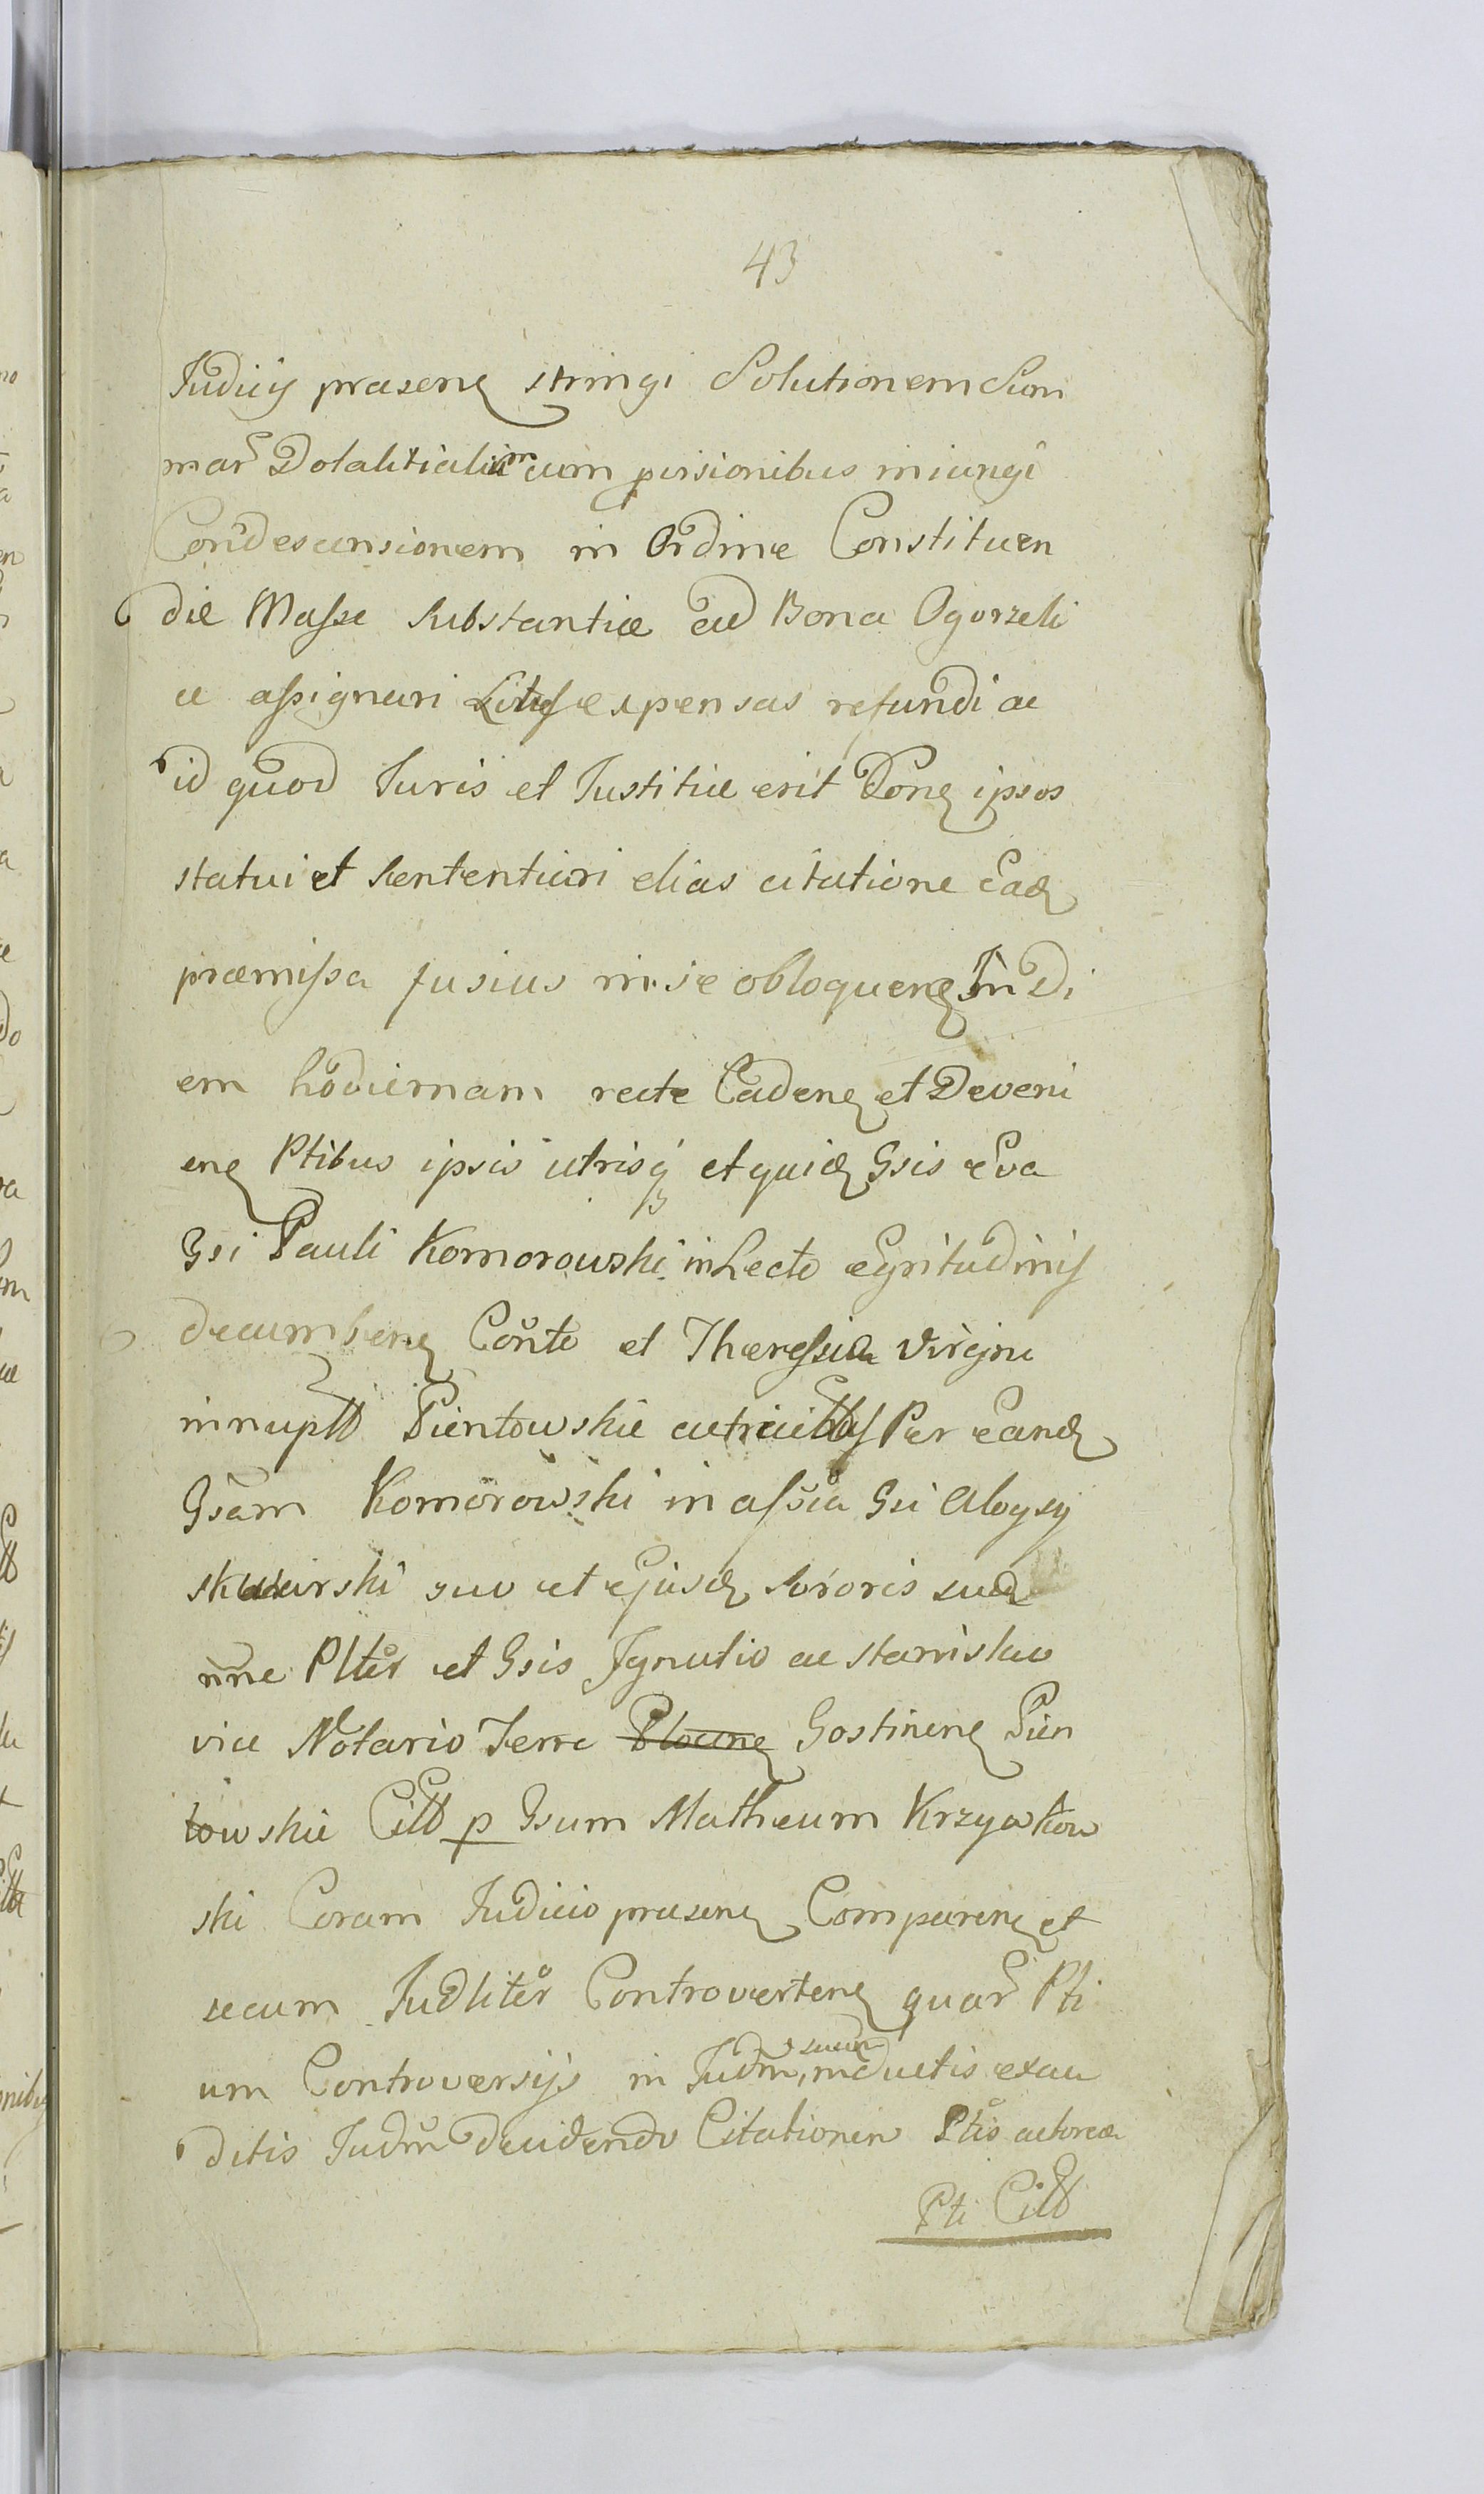 43
Judicÿ præsenꝫ stringi Solutionem Sum
mar̃ Dotalitialium cum provisionibus iniungi
Condescensionem in Ordine Constituen
dæ Massæ substantiæ ad Bona Ogorzeli
ce assignari Litis expensas refundi ac
id quod Juris et Justitiæ erit Conꝫ ipsos
statui et sententiari alias citatione eadꝫ
præmissa fusius in se obloquenꝫ In Di
em hodiernam recte Cadenꝫ et Deveni
enꝫ Ptibus ipsis utrisqꝫ et quidꝫ Gsis Eva
Gsi Pauli Komorowski in Lecto ægritudinis
decumbenꝫ Conte et Theressia Virgine
innupta Pientowskie actricibus Per eandꝫ
Gsam Komorowski in assia Gsi Aloysÿ
suo et ejusdꝫ sororis suæ
nne Plter et Gsis Ignatio ac Stanislao
vice Notario Terræ Plocenꝫ Gostinenꝫ Pien
towskie Citt p Gsum Mathæum Krzywkow
ski Coram Judicio præsenꝫ Comparenꝫ et
secum Judliter Controvertenꝫ quar̃ Pti
um Controversÿs in Judm, suum inductis exau
ditis Judm decidendo Citationem Ptis actoreæ
Pti Citt